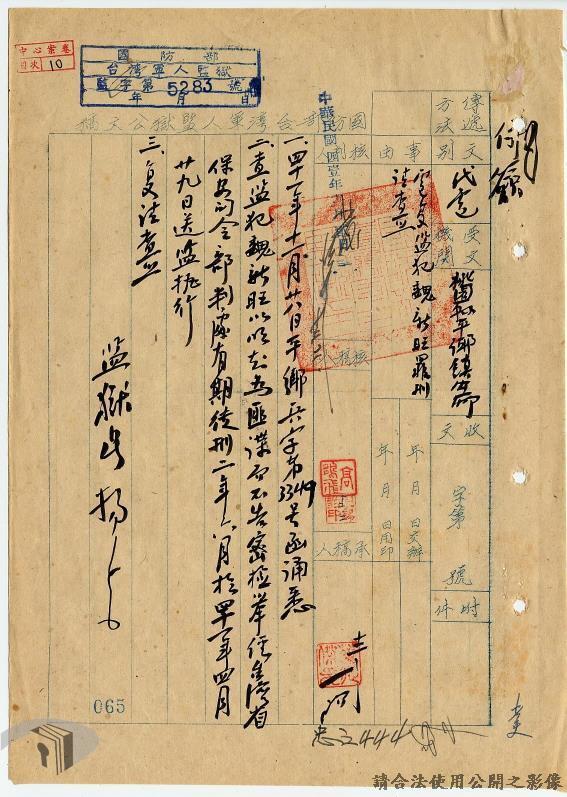 中心案卷
目次 10
國防部
台灣軍人監獄
監字第5283號
年 月 日
國防部台灣軍人監獄公文稿
傳遞方法
文別
代電
受文機關
平鄉鎮公所
收文
字第 號
附件
事由
電復監犯魏新旺罪刑
請查照
年 月 日交辦
年 月 日用印
核稿人
承稿人
中華民國四壹年
一、四十一年十一月廿八日平鄉兵字第3349號函誦悉
二、查監犯魏新旺以明知為匪諜而不告密檢舉經台灣省
保安司令部判處有期徒刑二年六月於四十一年四月
廿九日送監執行
三、復請查照
監獄長楊
065
請合法使用公開之影像